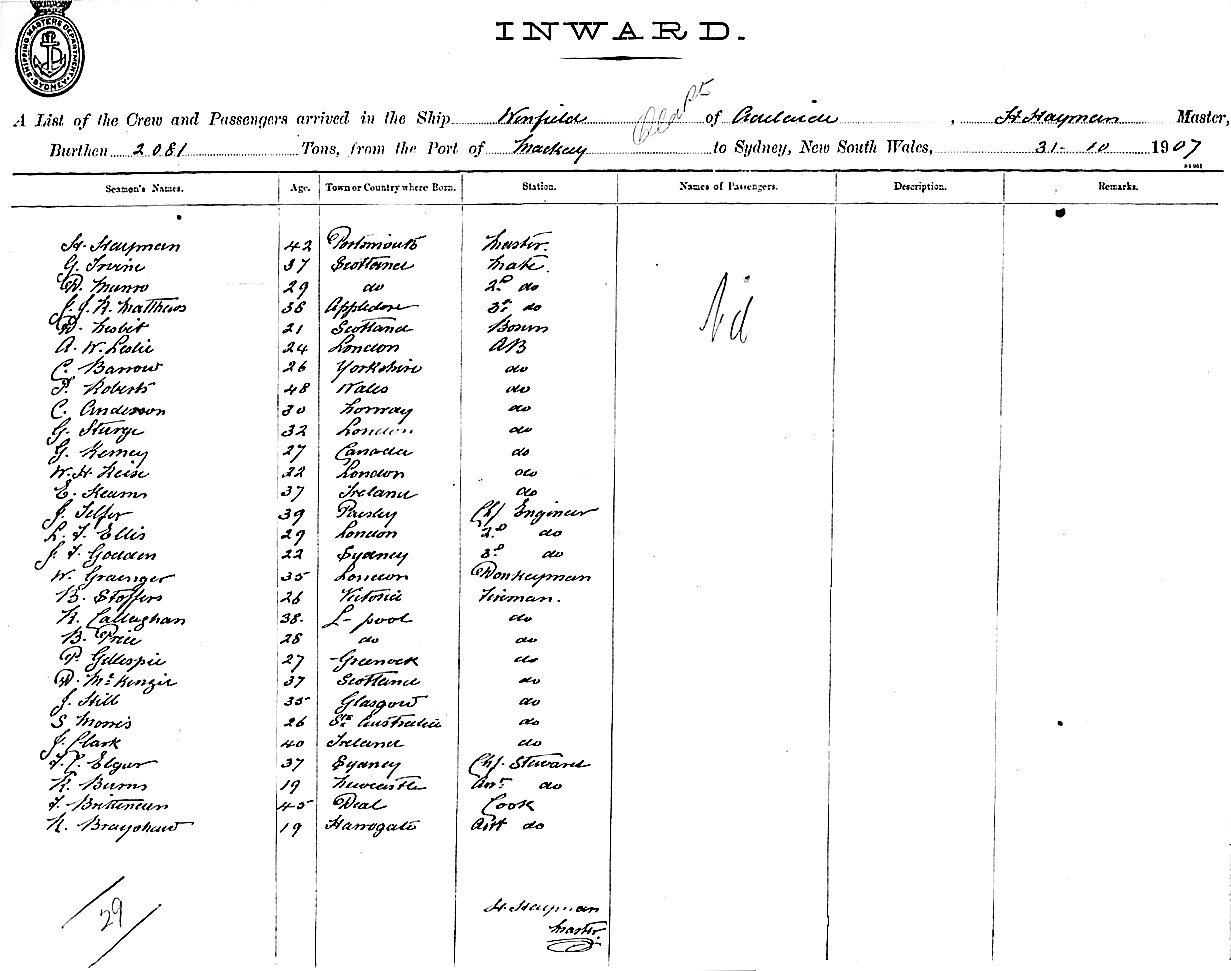 SHIPPING MASTERS DEPARTMENT SYDNEY
INWARD.
A List of the Crew and Passengers arrived in the Ship Winfield of Adelaide, H Hayman Master,
Burthen 2081 Tons, from the Port of Mackay to Sydney, New South Wales, 31- 10 1907
Seamen's Names. Age. Town or Country where Born. Station. Names of Passengers. Description. Remarks.
H. Hayman 42 Portsmouth Master.
G. Irvine 37 Scotland Mate.
D. Munro 29 do 2nd do
J. J. R. Matthews 38 Appledore 3rd do
D. Nesbit 21 Scotland Bosun
A. W. Leslie 24 London AB
C. Barrow 26 Yorkshire do
F. Roberts 48 Wales do
C. Anderson 30 Norway do
G. Sturge 32 London do
G. Kemey 27 Canada do
W. H. Heise 22 London do
E. Kearns 37 Ireland do
J. Telfer 39 Paisley Chf Engineer
L. F. Ellis 29 London 2nd do
J. F. Godden 22 Sydney 3rd do
W. Grainger 35 London Donkeyman
B. Stoffers 26 Victoria Fireman.
R. Callaghan 38. L-pool do
B. Price 28 do do
P. Gillespie 27 Greenock do
D. McKenzie 37 Scotland do
J. Hill 35 Glasgow do
S Morris 26 Sth Australia do
J. Clark 40 Ireland do
F. C. Elgar 37 Sydney Chf. Steward
R. Burns 19 Newcastle do
F. Brittenden 45 Deal Cook
R. Brayshaw 19 Harrogate Asst do
Nil
29
H. Hayman
Master.